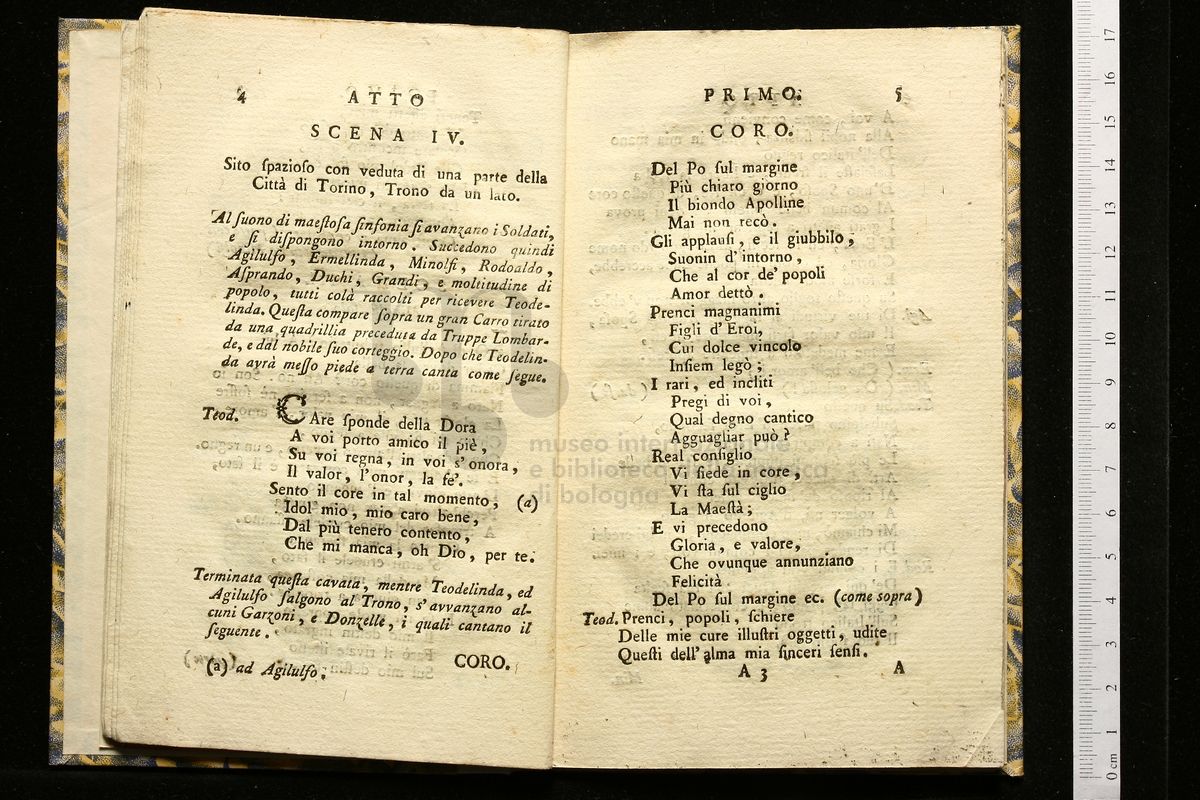 4 ATTO
SCENA IV.
Sito ſpazioſo con veduta di una parte della
Città di Torino, Trono da un lato.
Al ſuono di maeſtoſa ſinfonia ſi avanzano i Soldati,
e ſi diſpongono intorno. Succedono quindi
Agilulfo, Ermellinda, Minolfi, Rodoaldo,
Aſprando, Duchi, Grandi, e moltitudine di
popolo, tutti colà raccolti per ricevere Teode-
linda. Queſta compare ſopra un gran Carro tirato
da una quadrillia preceduta da Truppe Lombar-
de, e dal nobile ſuo corteggio. Dopo che Teodelin-
da avrà meſſo piede a terra canta come ſegue.
Teod. CAre ſponde della Dora
A voi porto amico il piè,
Su voi regna, in voi s'onora,
Il valor, l'onor, la fe'.
Sento il core in tal momento, (a)
Idol mio, mio caro bene,
Dal più tenero contento,
Che mi manca, oh Dio, per te.
Terminata queſta cavata, mentre Teodelinda, ed
Agilulfo ſalgono al Trono, s'avvanzano al-
cuni Garzoni, e Donzelle, i quali cantano il
ſeguente.
CORO.
(a) ad Agilulfo.
PRIMO. 5
CORO.
Del Po ſul margine
Più chiaro giorno
Il biondo Apolline
Mai non recò.
Gli applauſi, e il giubbilo,
Suonin d'intorno,
Che al cor de' popoli
Amor dettò.
Prenci magnanimi
Figli d'Eroi,
Cui dolce vincolo
Inſiem legò;
I rari, ed incliti
Pregi di voi,
Qual degno cantico
Agguagliar può?
Real conſiglio
Vi ſiede in core,
Vi ſta ſul ciglio
La Maeſtà;
E vi precedono
Gloria, e valore,
Che ovunque annunziano
Felicità.
Del Po ſul margine ec. (come sopra)
Teod. Prenci, popoli, ſchiere
Delle mie cure illuſtri oggetti, udite
Queſti dell'alma mia ſinceri ſenſi.
A 3 A
museo internazionale
e biblioteca della musica
di bologna
0 cm 1 2 3 4 5 6 7 8 9 10 11 12 13 14 15 16 17